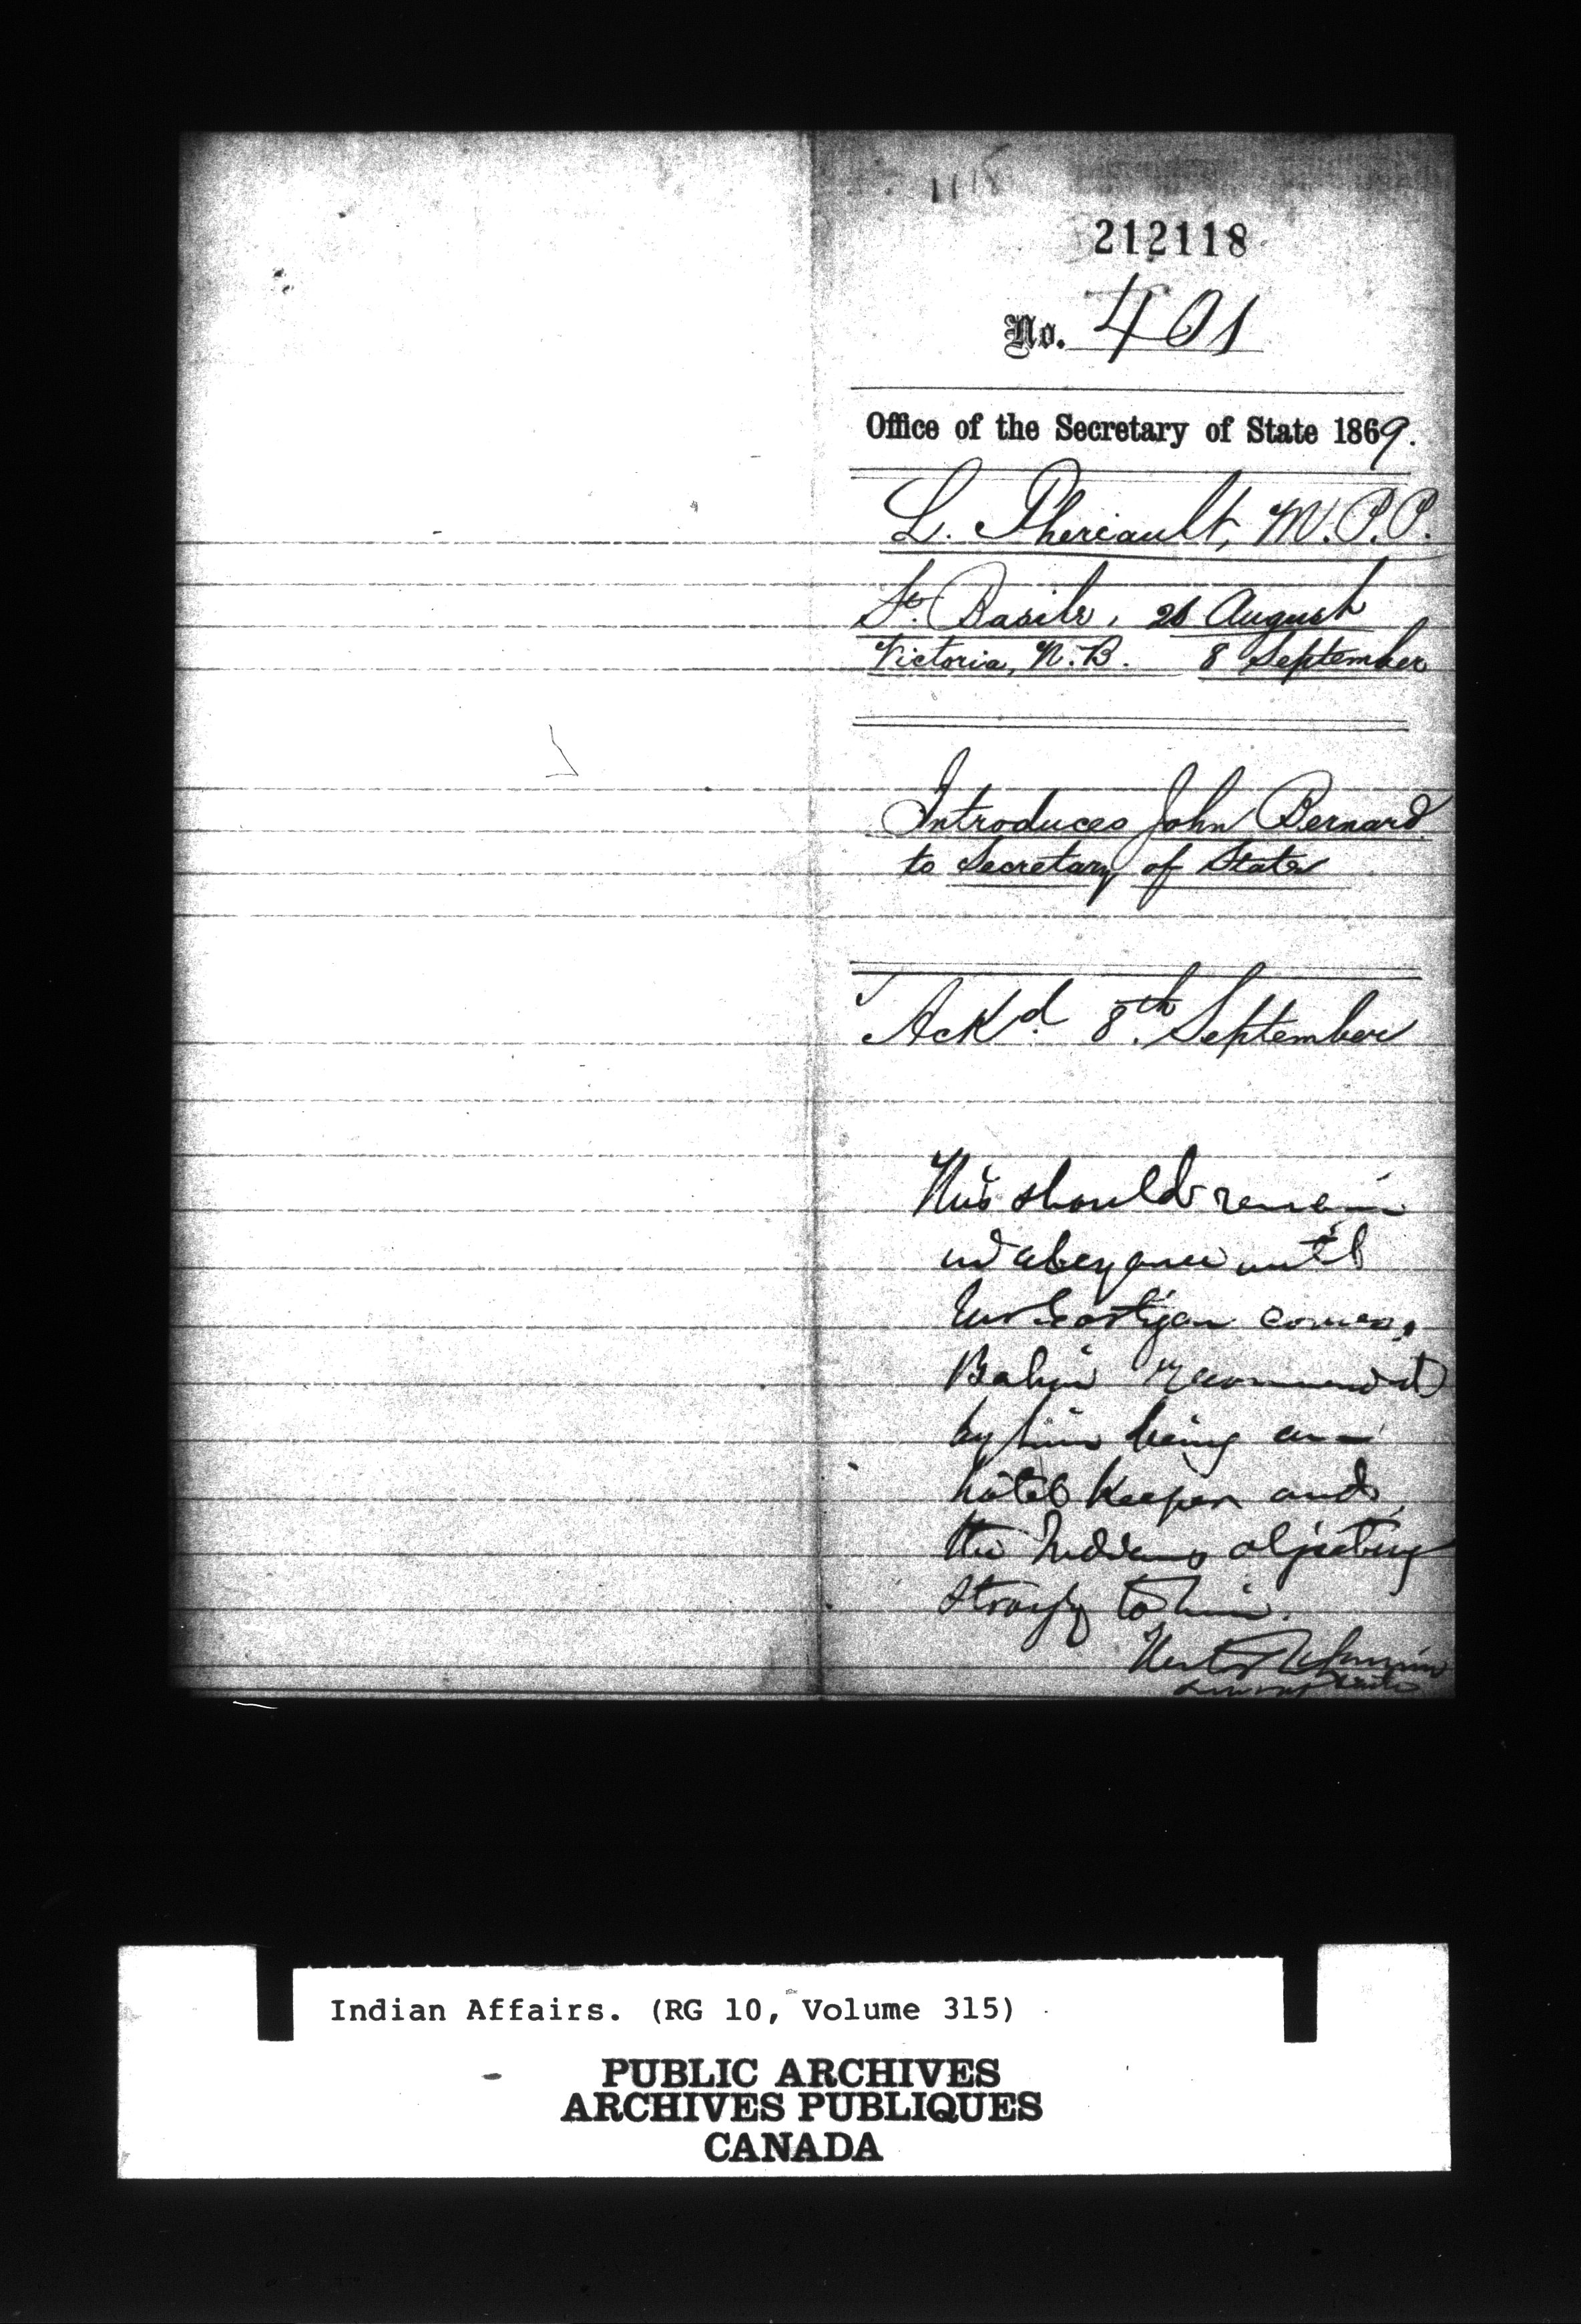 212118
No. 401
Office of the Secretary of State 1869.
L. Theriault, M.P.P.
St. Basile, 26 August
Victoria, N.B. 8 September
Introduces John Bernard
to Secretary of State
Ackd. 8th. September
This should remain
in abeyance until
Mr Costigan comes,
recommended
by him being an
hotel keeper and
the Indians objecting
strongly to him.
Indian Affairs. (RG 10, Volume 315)
PUBLIC ARCHIVES
ARCHIVES PUBLIQUES
CANADA